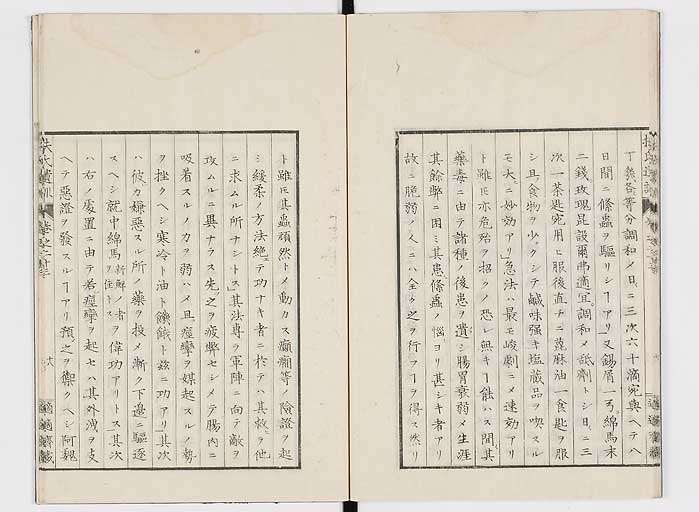 丁羨各等分調和メ日ニ三次六十滴宛與ヘテ八
日間ニ條蟲ヲ驅リシヿアリ又錫屑一弓綿馬末
二錢玫瑰昆設爾弗適宜調和メ舐劑トシ日ニ三
次一茶匙宛用ヒ服後直チニ蓖麻油一食匙ヲ服
シ且食物ヲ少クシテ鹹味强キ塩藏品ヲ喫スル
モ大ニ妙効アリ急法ハ最モ峻劇ニメ速効アリ
ト雖𪜈亦危殆ヲ招クノ恐レ無キヿ能ハス間其
藥毒ニ由テ諸種ノ後患ヲ遺シ腸胃衰弱メ生涯
其餘弊ニ困ミ其患條蟲ノ惱ヨリ甚シキ者アリ
故ニ脆弱ノ人ニハ全ク之ヲ行フヿヲ得ス然リ
ト雖𪜈其蟲頑然トメ動カス癲癎等ノ險證ヲ起
シ緩柔ノ方法絶テ功ナキ者ニ於テハ其救ヲ他
ニ求ムル所ナシトス其法專ラ軍陣ニ向テ敵ヲ
攻ムルニ異ナラス先之ヲ疲弊セシメテ腸内ニ
吸着スルノ力ヲ弱ハメ且痙攣ヲ媒起スルノ勢
ヲ挫クヘシ寒冷ト油ト饑餓ト玆ニ功アリ其次
ハ彼カ嫌惡スル所ノ藥ヲ投メ漸ク下邊ニ驅逐
スヘシ就中綿馬新鮮ノ者ヲ佳トスヲ偉功アリトス其次
ハ右ノ處置ニ由テ若痙攣ヲ起セハ其外洩ヲ支
ヘテ惡證ヲ發スルヿアリ預之ヲ禦クヘシ阿魏